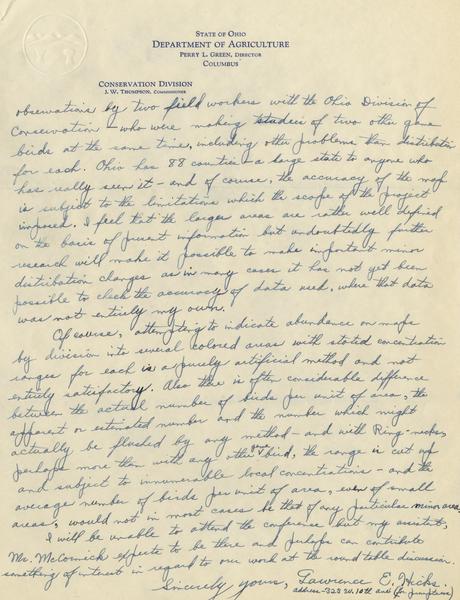 STATE OF OHIO
DEPARTMENT OF AGRICULTURE
PERRY L. GREEN, DIRECTOR
COLUMBUS
CONSERVATION DIVISION
J. W. THOMPSON, COMMISSIONER
observations by two field workers with the Ohio Division of
Conservation who were making studies of two other game
birds at the same time, including other problems than distribution
for each. Ohio has 88 counties - a large state to anyone who
has really seen it - and of course, the accuracy of the map
is subject to the limitations which the scope of the project
imposed. I feel that the larger areas are rather well defined
on the basis of present information but undoubtedly further
research will make it possible to make important minor
distribution changes as in many cases it has not yet been
possible to check the accuracy of data used, where that data
was not entirely my own.
Of course, attempting to indicate abundance on maps
by division into several colored areas with stated concentration
ranges for each is a purely artificial method and not
entirely satisfactory. Also there is often considerable difference
between the actual number of birds per unit of area, the
apparent or estimated number and the number which might
actually be flushed by any method - and with Ring-necks,
perhaps more than with any other game bird, the range is cut up
and subject to innumerable local concentrations - and the
average number of birds per unit of area, even of small
areas, would not in most cases be that of any particular minor area.
I will be unable to attend the conference but my assistant,
Mr. McCormick expects to be there and perhaps can contribute
something of interest in regard to our work at the round table discussion.
Sincerely yours, Lawrence E. Hicks.
address - 328 W. 10th Ave (for jump item)